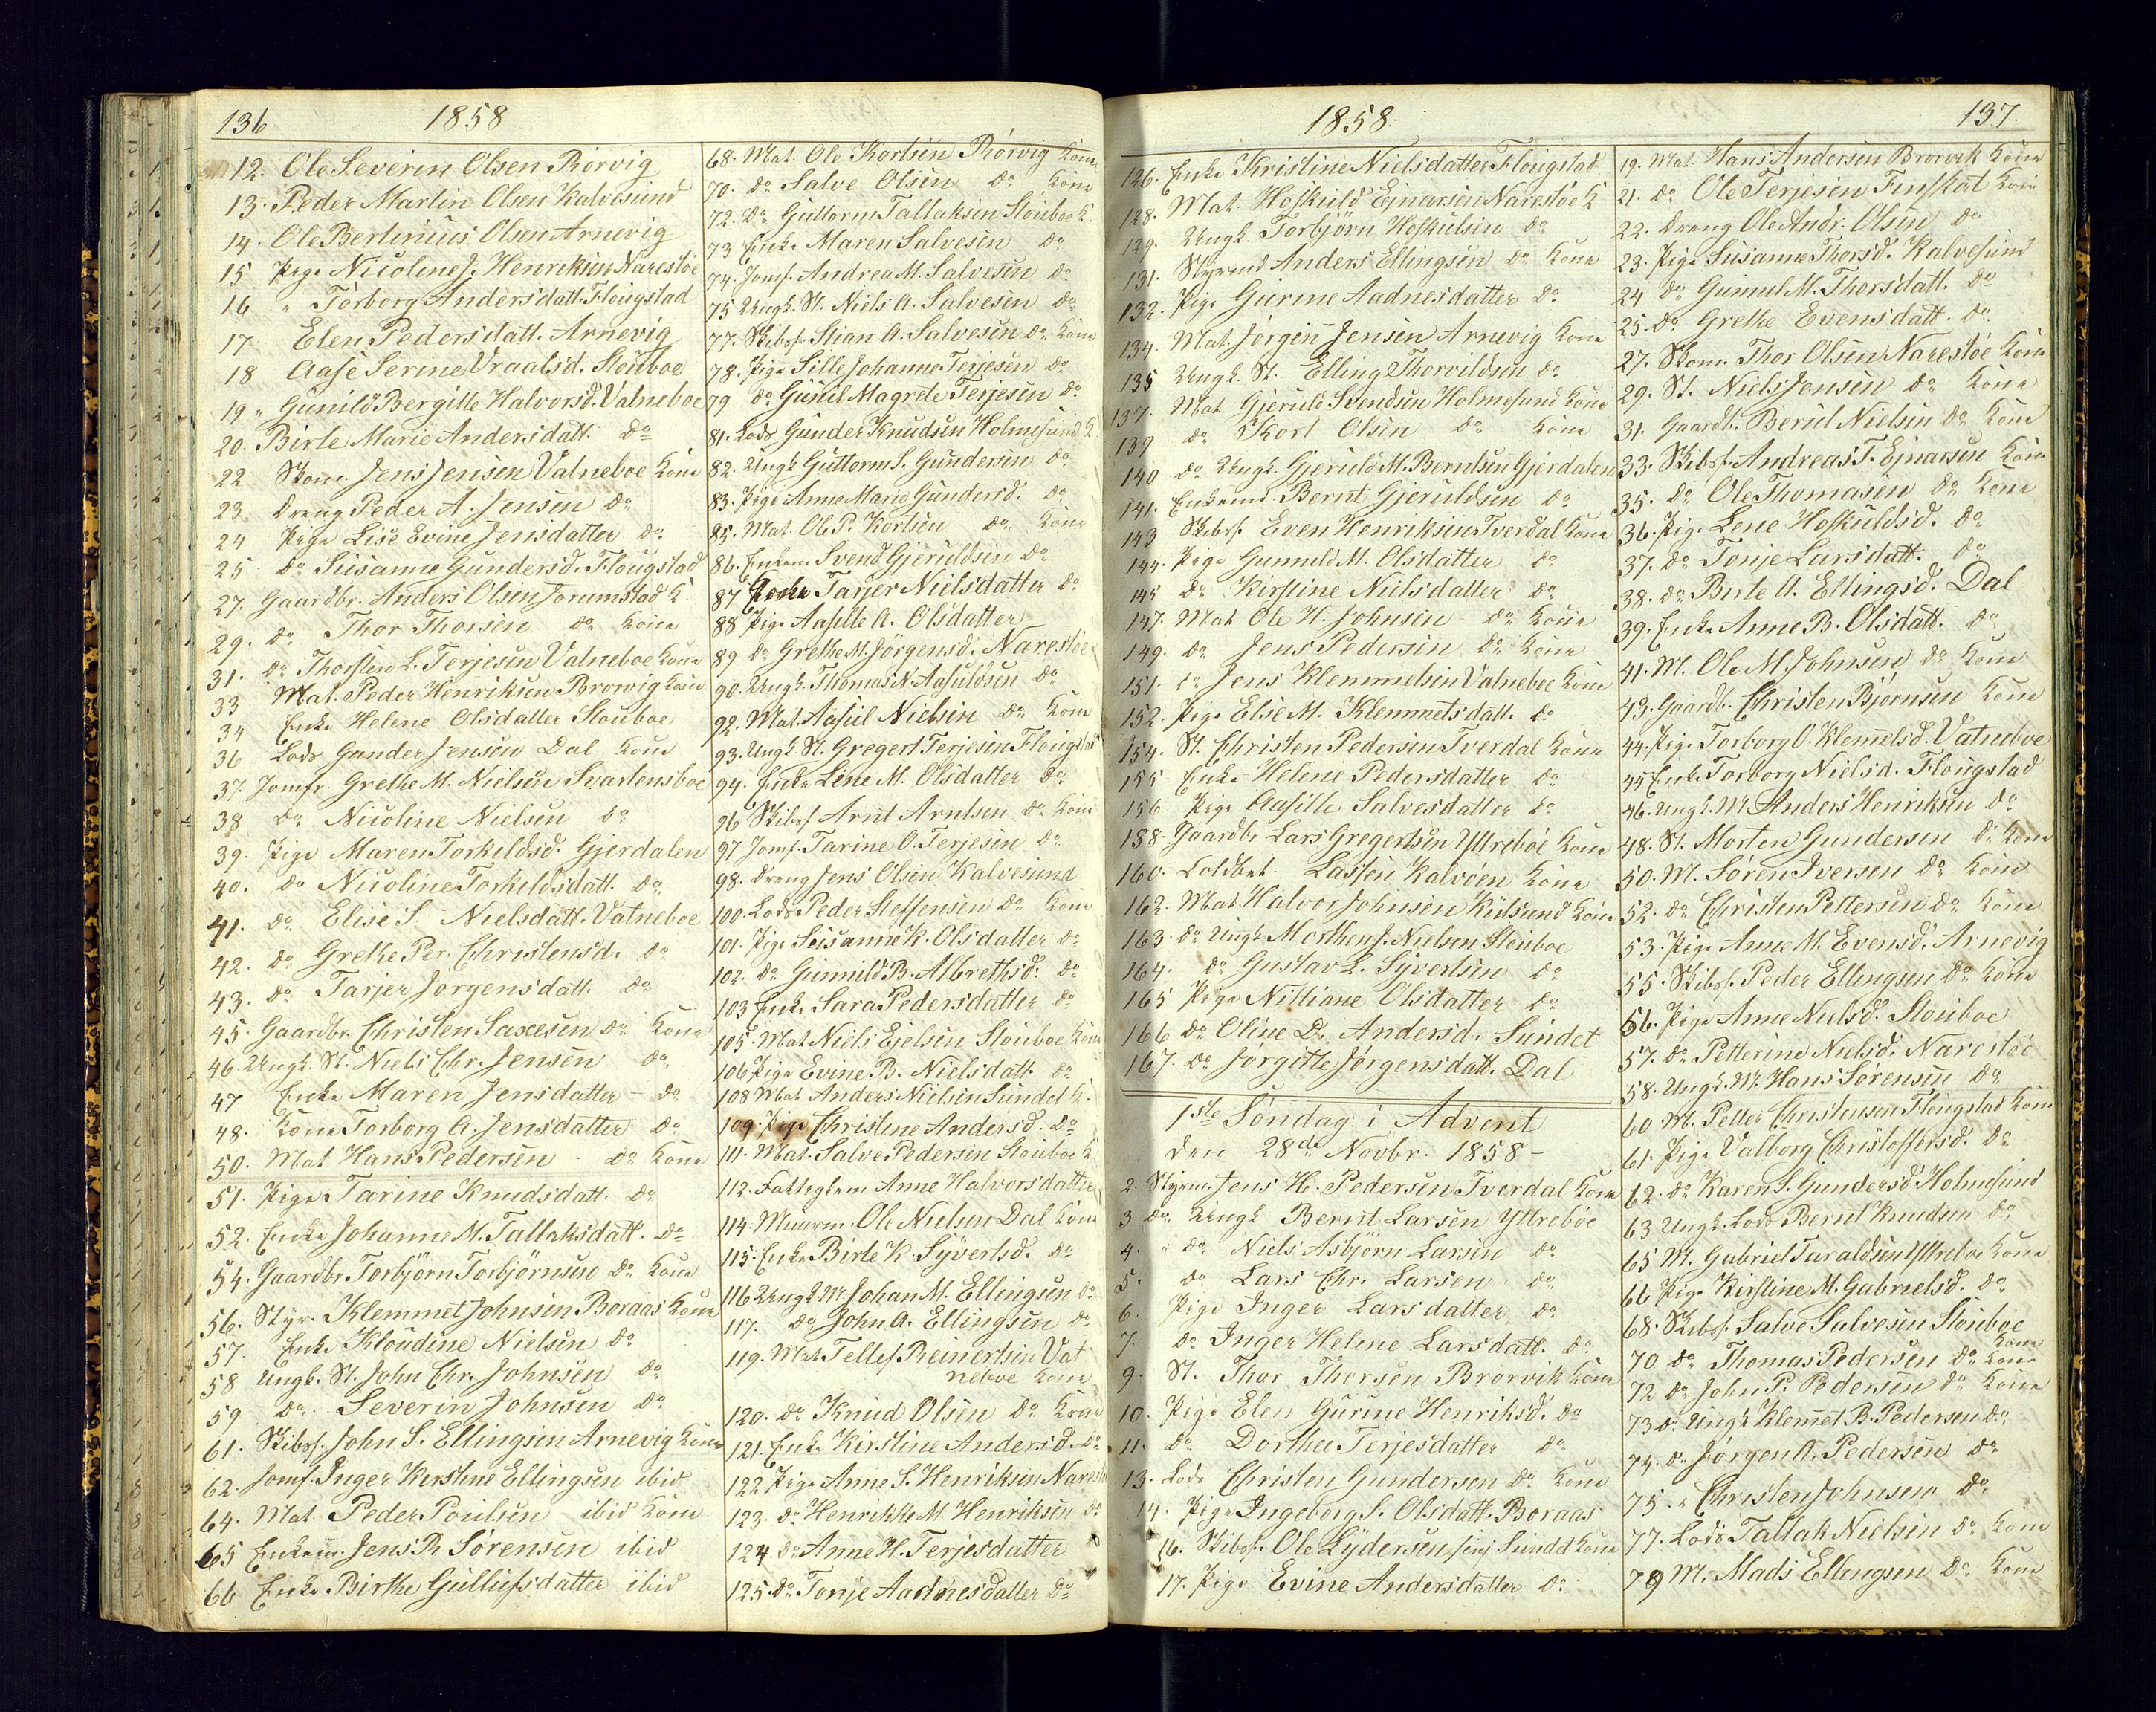 136 1858
12. Ole Severin Olsen Rørvig
13. Peder Martin Olsen Kalvesund
14. Ole Bertinius Olsen Arnevig
15 Pige Nicoline J. Henriksen Narestøe
16 " Torborg Andersdatt. Flougstad
17 Elen Pedersdatt. Arnevig
18 Aase Serine Vraalsd. Stouboe
19 " Gunild Bergitte Halvorsd. Vatneboe
20. Birte Marie Andersdatt. do
22 Skom. Jens Jensen Vatneboe Kone
23 Dreng Peder A. Jensen do
24 Pige Lise Evine Jensdatter do
25 do Susanne Gundersd. Flougstad
27. Gaardbr. Anders Olsen Jorumstad K.
29. do Thor Thorsen do Kone
31. do Thorsten L. Terjesen Vatneboe Kone
33 Mat. Peder Henriksen Brorvig Kone
34 Enke Helene Olsdatter Stouboe
36 Lods Gunder Jensen Dal Kone
37. Jomfr Grethe M. Nielsen Svartensboe
38 do Nicoline Nielsen do
39. Pige Maren Torkeldsd. Gjerdalen
40. do Nicoline Torkildsdatt. do
41. do Elise S. Nielsdatt. Vatneboe
42. do Grethe Per. Christensd. do
43. do Tarjer Jørgensdatt. do
45. Gaardbr. Christen Saxesen do Kone
46. Ungk. St. Niels Chr. Jensen do
47 Enke Maren Jensdatter - do
48. Kone Torborg A. Jensdatter do
50. Mat Hans Pedersen - do Kone
51. Pige Tarine Knudsdatt. do
52. Enke Johanne M. Tallaksdatt. do
54. Gaardbr. Torbjørn Torbjørnsen do Kone
56. Styr. Klemmet Johnsen Boraas Kone
57. Enke Kloudine Nielsen do
58 Ungk. St. John Chr. Johnsen do
59 do Severin Johnsen do
61. Skibsf. John S. Ellingsen Arnevig Kone
62. Jomf. Inger Kirstine Ellingsen ibid
64. Mat. Peder Poulsen ibid Kone
65 Enkem. Jens P. Sørensen ibid
66 Enke Birthe Gullufsdatter ibid
68. Mat. Ole Kortsen Rørvig Kone
70. do Salve Olsen do Kone
72. do Guttorm Tallaksen Stouboe K.
73 Enke Maren Salvesen do
74. Jomf. Andrea M. Salvesen do
75 Ungk. St. Niels A. Salvesen do
77. Skibsf. Stian A. Salvesen do Kone
78. Pige Sille Johanne Terjesen do
79 do Gunil Magrete Terjesen do
81. Lods Gunder Knudsen Holmesund K
82. Ungk Guttorm S. Gundersen do
83. Pige Anne Marie Gundersd. do
85. Mat. Ole P. Kortsen do Kone
86. Enkem. Svend Gjeruldsen do
87 Tarjer Nielsdatter do
88 Pige Aasille A. Olsdatter
89 do Grethe M. Jørgensd. Narestøe
90. Ungk. Thomas N. Aasuldsen do
92. Mat. Aasul Nielsen do Kone
93. Ungk. St. Gregert Terjesen Flougstad
94. Enke Line M. Olsdatter do
96 Skibsf Arnt Arntsen do Kone
97 Jomf. Tarine O. Terjesen do
98. Dreng Jens Olsen Kalvesund
100. Lods Peder Steffensen do Kone
101. Pige Susanne K. Olsdatter do
102. do Gunnild B. Albrethsd. do
103 Enke Sara Pedersdatter do
105. Mat Niels Ejelsen Stouboe Kone
106 Pige Evine B. Nielsdatt. do
108 Mat Anders Nielsen Sundet K.
109. Pige Christine Andersd. do
111. Mat. Salve Pedersen Stouboe K
112. Fattiglem Anne Halvorsdatter
114. Muurm. Ole Nielsen Dal Kone
115. Enke Birte K. Syvertsd. do
116 Ungk M. Johan M. Ellingsen do
117. do John A. Ellingsen do
119. Mat Tellef Reinertsen Vat
neboe Kone
120. do Knud Olsen do Kone
121. Enke Kirstine Andersd. do
122 Pige Anne S. Henriksen Narestø
123. do Henrikke M. Henriksen do
124. do Anne H. Terjesdatter
125. do Tonje Aadnesdatter do
1858 137.
126. Enke Kristine Nielsdatter Flougstad
128. Mat. Hofkuld Ejnarsen Narestøe K
129. Ungk. Torbjörn Hofkulsen do
131. Styrmd Anders Ellingsen do Kone
132. Pige Gurine Aadnesdatter do
134. Mat. Jørgen Jensen Arnevig Kone
135 Ungk. St. Elling Thorvildsen do
137. Mat Gjeruld Svendsen Holmesund Kone
139 do Kort Olsen do Kone
140 do Ungk. Gjeruld M. Berntsen Gjerdalen
141. Enkemd. Bernt Gjeruldsen do
143 Skibsf. Even Henriksen Tverdal Kone
144. Pige Gunnild M. Olsdatter do
145 do Kirstine Nielsdatter do
147. Mat Ole H. Johnsen do Kone
149. do Jens Pedersen do Kone
151. do Jens Klemmetsen Vatneboe Kone
152. Pige Elise M. Klemmetsdatt. do
154. St. Christen Pedersen Tverdal Kone
155 Enke Helene Pedersdatter do
156 Pige Aasille Salvesdatter do
158. Gaardbr Lars Gregertsen Yttrebøe Kone
160. Toldbet. Lassen Kalvøen Kone
162. Mat Halvor Johnsen Kilsund Kone
163. do Ungk Morthen J. Nielsen Stouboe
164. do Gustav L. Syvertsen do
165 Pige Nilliane Olsdatter do
166 do Oline D. Andersd. Sundet
167. do Jorgitte Jørgensdatt. Dal
1ste Søndag i Advent
den 28de Novbr. 1858 -
2. Styrm. Jens H. Pedersen Tverdal Kone
3 do. Ungk Bernt Larsen Yttrebøe
4. " do Niels Asbjørn Larsen do
5. do Lars Chr. Larsen do
6. Pige Inger Larsdatter do
7. do Inger Helene Larsdatt. do
9. St. Thor Thorsen Brorvik Kone
10. Pige Elen Gurine Henriksd. do
11. do Dorthea Terjesdatter do
13. Lods Christen Gundersen do Kone
14. Pige Ingeborg S. Olsdatt. Boraas
16. Skibsf. Ole Lydersen senj Sundet Kone
17. Pige Evine Andersdatter do
19. Mat. Hans Andersen Brorvik Kone
21. do Ole Terjesen Kone
22. Dreng Ole Andr. Olsen do
23. Pige Susanne Thorsd. Kalvesund
24 do Gunnil M. Thorsdatt. do
25. do Grethe Evensdatt. do
27. Skom. Thor Olsen Narestøe Kone
29. St. Niels Jensen do Kone
31. Gaardb. Berul Nielsen do Kone
33. Skibsf. Andreas T. Ejnarsen Kone
35. do Ole Thomasen do Kone
36. Pige Lene Hofkuldsd. do
37. do Tonje Larsdatt. do
38. do Birte A. Ellingsd. Dal
39. Enke Anne B. Olsdatt. do
41. M. Ole M. Johnsen do Kone
43. Gaardb. Christen Bjørnsen Kone
44. Pige Torborg O. Klemetsd. Vatneboe
45 Enke Torborg Nielsd. Flougstad
46. Ungk. M. Anders Henriksen do
48. St. Morten Gundersen do Kone
50. M. Søren Iversen do Kone
52. do Christen Pettersen do Kone
53. Pige Anne M. Evensd. Arnevig
55. Skibsf. Peder Ellingsen do Kone
56. Pige Anne Nielsd. Stouboe
57. do Petterine Nielsd. Narestøe
58. Ungk. M. Hans Sørensen do
60. M. Petter Christensen Flougstad Kone
61. Pige Valborg Christoffersd. do
62. do Karen S. Gundersd Holmesund
63 Ungk. Lods Bernt Knudsen do
65 M. Gabriel Taraldsen Yttreboe Kone
66 Pige Kirstine M. Gabrielsd. do
68. Skibsf. Salve Salvesen Stouboe
Kone
70 do Thomas Pedersen do Kone
72 do John P. Pedersen do Kone
73 d. Ungk Klemet B. Pedersen do
74. do Jørgen A. Pedersen do
75. " Christen Johnsen do
77. Lods Tallak Nielsen do Kone
79 M. Mads Ellingsen do Kone